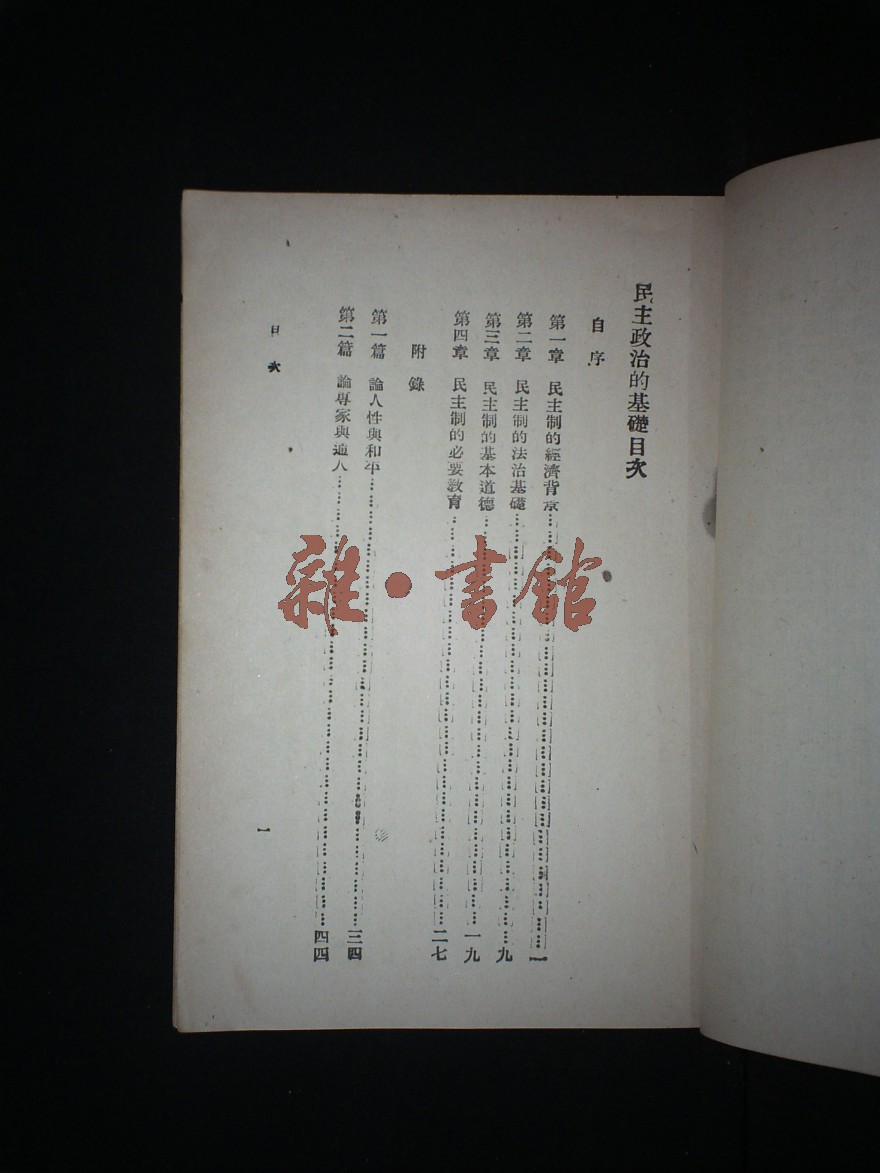 民主政治的基礎目次
自序
第一章 民主制的經濟背京……一
第二章 民主制的法治基礎……九
第三章 民主制的基本道德……一九
第四章 民主制的必要敎育……二七
附錄
第一篇 論人性與和平……三四
第二篇 論專家與通人……四四
目次
一
雜·書館